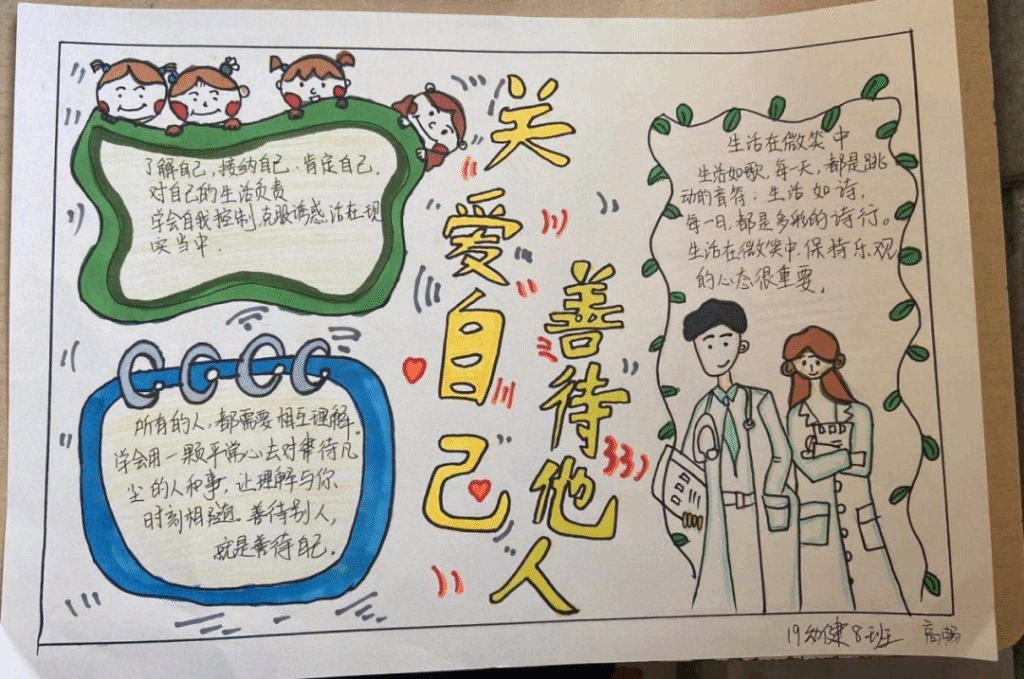 关爱自己
善待他人
了解自己,接纳自己.肯定自己.
对自己的生活负责
学会自我控制,克服诱惑.活在现
实当中.
所有的人,都需要相互理解.
学会用一颗平常心去对待凡
尘的人和事,让理解与你、
时刻相随。善待别人,
就是善待自己.
生活在微笑中
生活如歌,每一天,都是跳
动的音符;生活如诗,
每一日,都是多彩的诗行。
生活在微笑中,保持乐观
的心态很重要。
19幼健8班 高畅